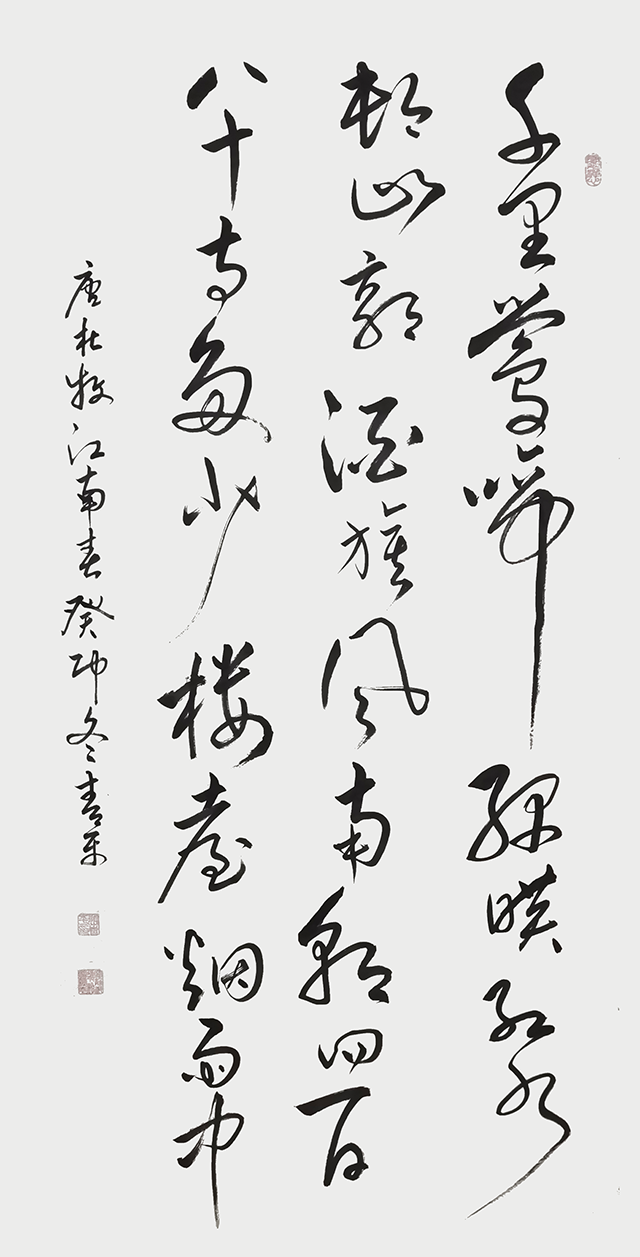 千里鶯啼綠映紅水
村山郭酒旗風南朝四百
八十寺多少楼臺烟雨中
唐杜牧江南春癸卯冬